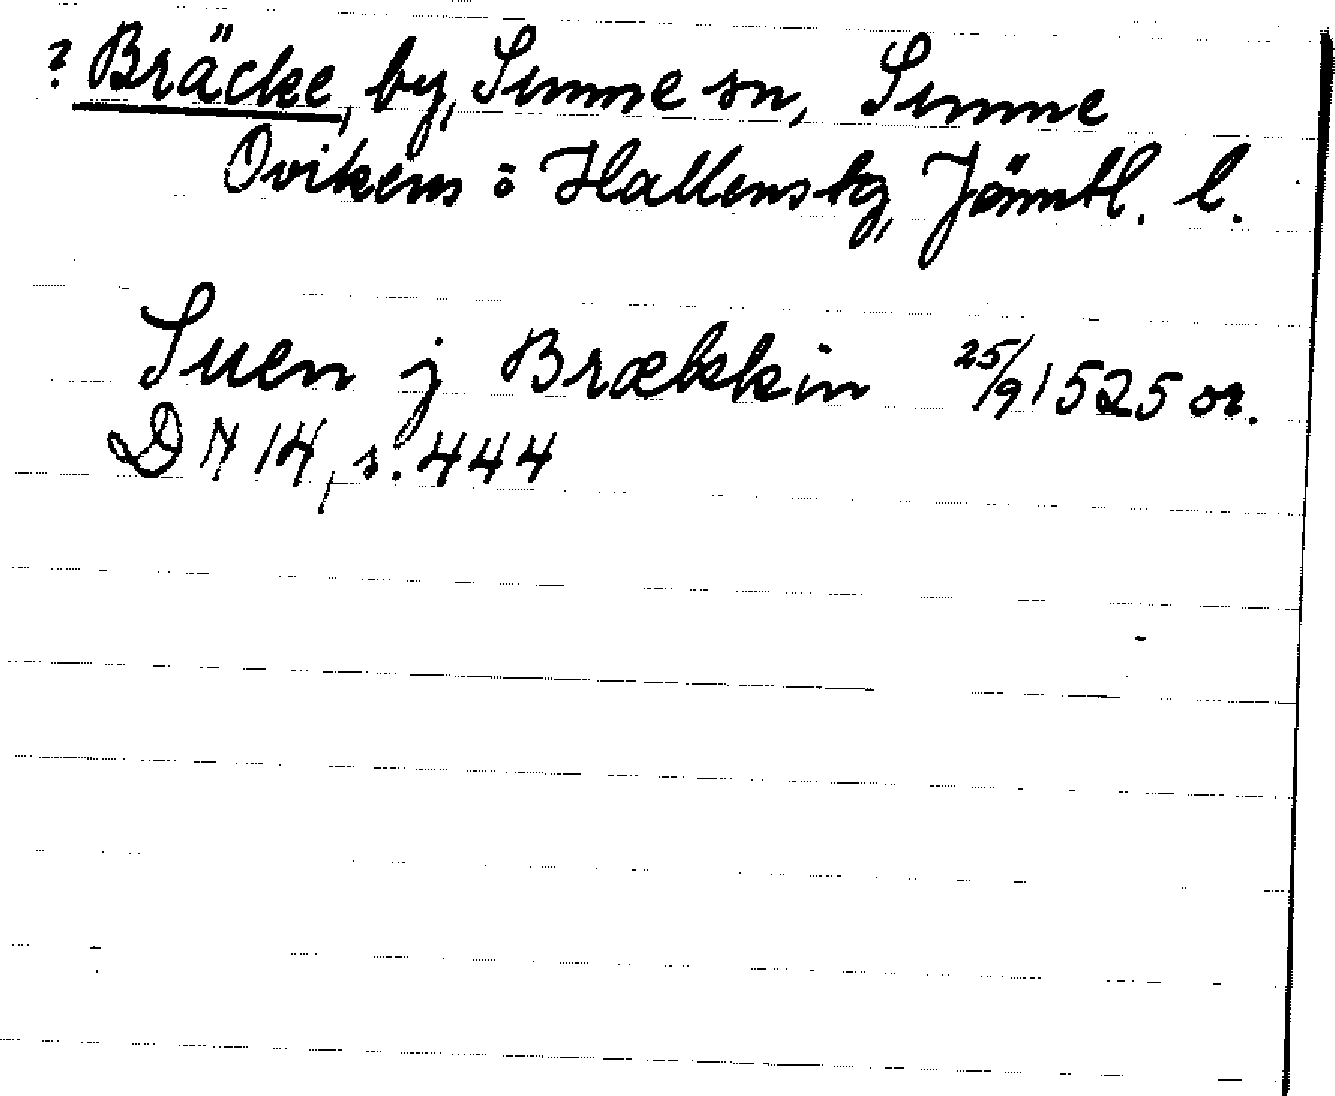 ? Bräcke, by, Sunne sn, Sunne
Ovikens o Hallens tg, Jämtl. l.
Suen j Brækkin 25/9 1525 or.
DN 14, s. 444